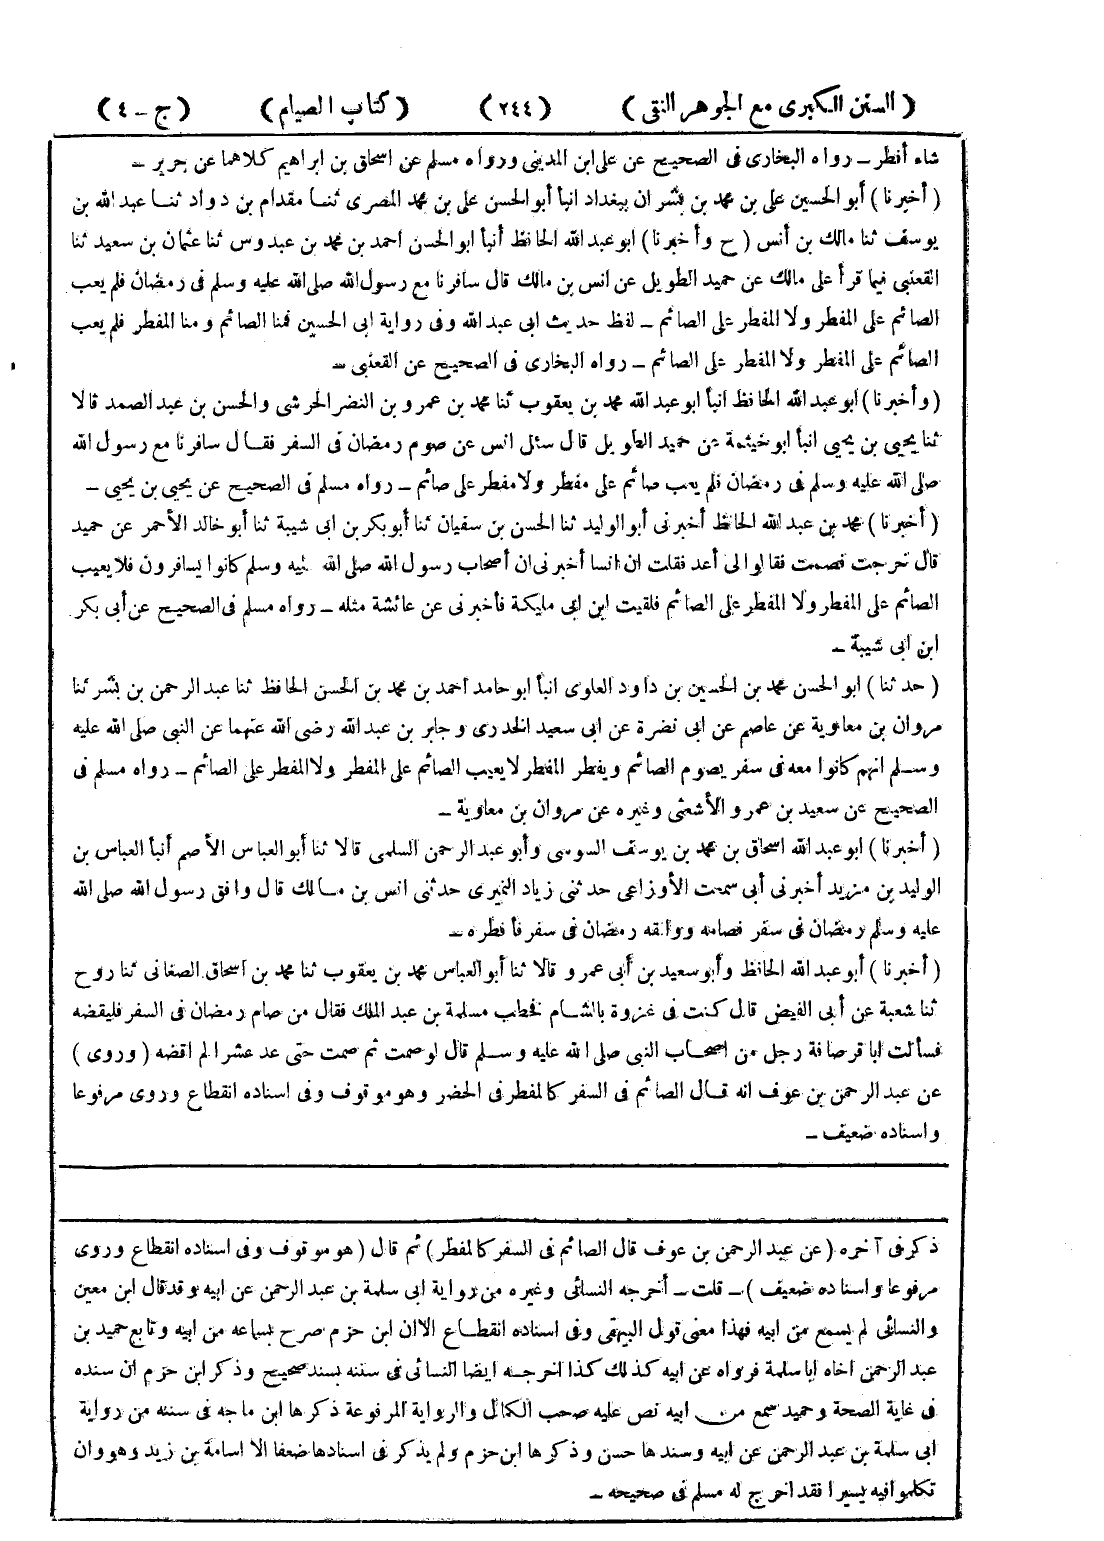 ( السنن الكبرى مع الجوهر النقى ) ( ٢٤٤ ) ( كتاب الصيام ) ( ج - ٤ )
شاء أفطر ــ رواه البخارى فى الصحيح عن على ابن المدينى ورواه مسلم عن اسحاق بن ابراهيم كلاهما عن جرير ــ
( أخبرنا ) أبو الحسين على بن محمد بن بشران ببغداد انبأ أبو الحسن على بن محمد المصرى ثنا مقدام بن دواد ثنا عبد الله بن
يوسف ثنا مالك بن أنس ( ح وأخبرنا ) ابو عبد الله الحافظ أنبأ ابو الحسن احمد بن محمد بن عبدوس ثنا عثمان بن سعيد ثنا
القعنبى فيما قرأ على مالك عن حميد الطويل عن انس بن مالك قال سافرنا مع رسول الله صلى الله عليه وسلم فى رمضان فلم يعب
الصائم على المفطر ولا المفطر على الصائم ــ لفظ حديث ابى عبد الله وفى رواية ابى الحسين فمنا الصائم ومنا المفطر فلم يعب
الصائم على المفطر ولا المفطر على الصائم ــ رواه البخارى فى الصحيح عن القعنبى ــ
( وأخبرنا ) ابو عبد الله الحافظ انبأ ابو عبد الله محمد بن يعقوب ثنا محمد بن عمرو بن النضر الحرشى والحسن بن عبد الصمد قالا
ثنا يحيى بن يحيى انبأ ابو خيثمة عن حميد الطويل قال سئل انس عن صوم رمضان فى السفر فقال سافرنا مع رسول الله
صلى الله عليه وسلم فى رمضان فلم يعب صائم على مفطر ولا مفطر على صائم ــ رواه مسلم فى الصحيح عن يحيى بن يحيى ــ
( أخبرنا ) محمد بن عبد الله الحافظ أخبرنى أبو الوليد ثنا الحسن بن سفيان ثنا أبو بكر بن ابى شيبة ثنا أبو خالد الأحمر عن حميد
قال خرجت فصمت فقالوا لى أعد فقلت ان انسا أخبرنى ان أصحاب رسول الله صلى الله عليه وسلم كانوا يسافرون فلا يعيب
الصائم على المفطر ولا المفطر على الصائم فلقيت ابن ابى مليكة فأخبرنى عن عائشة مثله ــ رواه مسلم فى الصحيح عن أبى بكر
ابن ابى شيبة ــ
( حدثنا ) ابو الحسن محمد بن الحسين بن داود العلوى انبأ ابو حامد احمد بن محمد بن الحسن الحافظ ثنا عبد الرحمن بن بشر ثنا
مروان بن معاوية عن عاصم عن ابى نضرة عن ابى سعيد الخدرى وجابر بن عبد الله رضى الله عنهما عن النبى صلى الله عليه
وسلم انهم كانوا معه فى سفر يصوم الصائم ويفطر المفطر لا يعيب الصائم على المفطر ولا المفطر على الصائم ــ رواه مسلم فى
الصحيح عن سعيد بن عمرو الأشعثى وغيره عن مروان بن معاوية ــ
( أخبرنا ) ابو عبد الله اسحاق بن محمد بن يوسف السوسى وأبو عبد الرحمن السلمى قالا ثنا أبو العباس الأصم أنبأ العباس بن
الوليد بن مزيد أخبرنى أبى سمعت الأوزاعى حدثنى زياد النميرى حدثنى انس بن مالك قال وافق رسول الله صلى الله
عليه وسلم رمضان فى سفر فصامه ووافقه رمضان فى سفر فأفطره ــ
( أخبرنا ) أبو عبد الله الحافظ وأبو سعيد بن أبى عمرو قالا ثنا أبو العباس محمد بن يعقوب ثنا محمد بن اسحاق الصغانى ثنا روح
ثنا شعبة عن أبى الفيض قال كنت فى غزوة بالشام فخطب مسلمة بن عبد الملك فقال من صام رمضان فى السفر فليقضه
فسألت ابا قرصافة رجل من اصحاب النبى صلى الله عليه وسلم قال لو صمت ثم صمت حتى عد عشرا لم اقضه ( وروى )
عن عبد الرحمن بن عوف انه قال الصائم فى السفر كالمفطر فى الحضر وهو موقوف وفى اسناده انقطاع وروى مرفوعا
واسناده ضعيف ــ
ذكر فى آخره ( عن عبد الرحمن بن عوف قال الصائم فى السفر كالمفطر ) ثم قال ( هو موقوف وفى اسناده انقطاع وروى
مرفوعا واسناده ضعيف ) ــ قلت ــ أخرجه النسائى وغيره من رواية ابى سلمة بن عبد الرحمن عن ابيه وقد قال ابن معين
والنسائى لم يسمع من ابيه فهذا معنى قول البيهقى وفى اسناده انقطاع الا ان ابن حزم صرح بسماعه من ابيه وتابع حميد بن
عبد الرحمن اخاه ابا سلمة فرواه عن ابيه كذلك كذا اخرجه ايضا النسائى فى سننه بسند صحيح وذكر ابن حزم ان سنده
فى غاية الصحة وحميد سمع من ابيه نص عليه صاحب الكمال والرواية المرفوعة ذكرها ابن ماجه فى سننه من رواية
ابى سلمة بن عبد الرحمن عن ابيه وسندها حسن وذكرها ابن حزم ولم يذكر فى اسنادها ضعفا الا اسامة بن زيد وهو وان
تكلموا فيه يسيرا فقد اخرج له مسلم فى صحيحه ــ